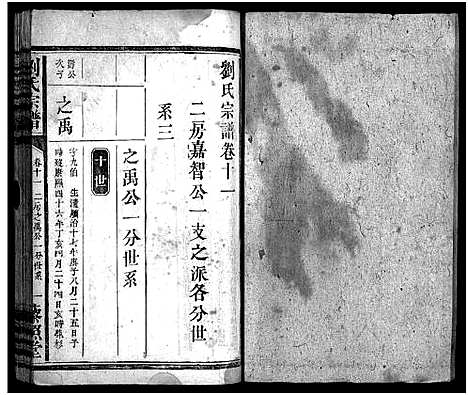 劉氏宗譜卷十一
二房嘉智公一支之派各分世
系三
之禹公一分世系
十世
之禹
字九伯 生清順治十七年庚子八月二十五日子
時歿康熙四十六年丁亥四月二十四日亥時葬杉
劉氏宗譜
卷十一 二房之禹公一分世系 一